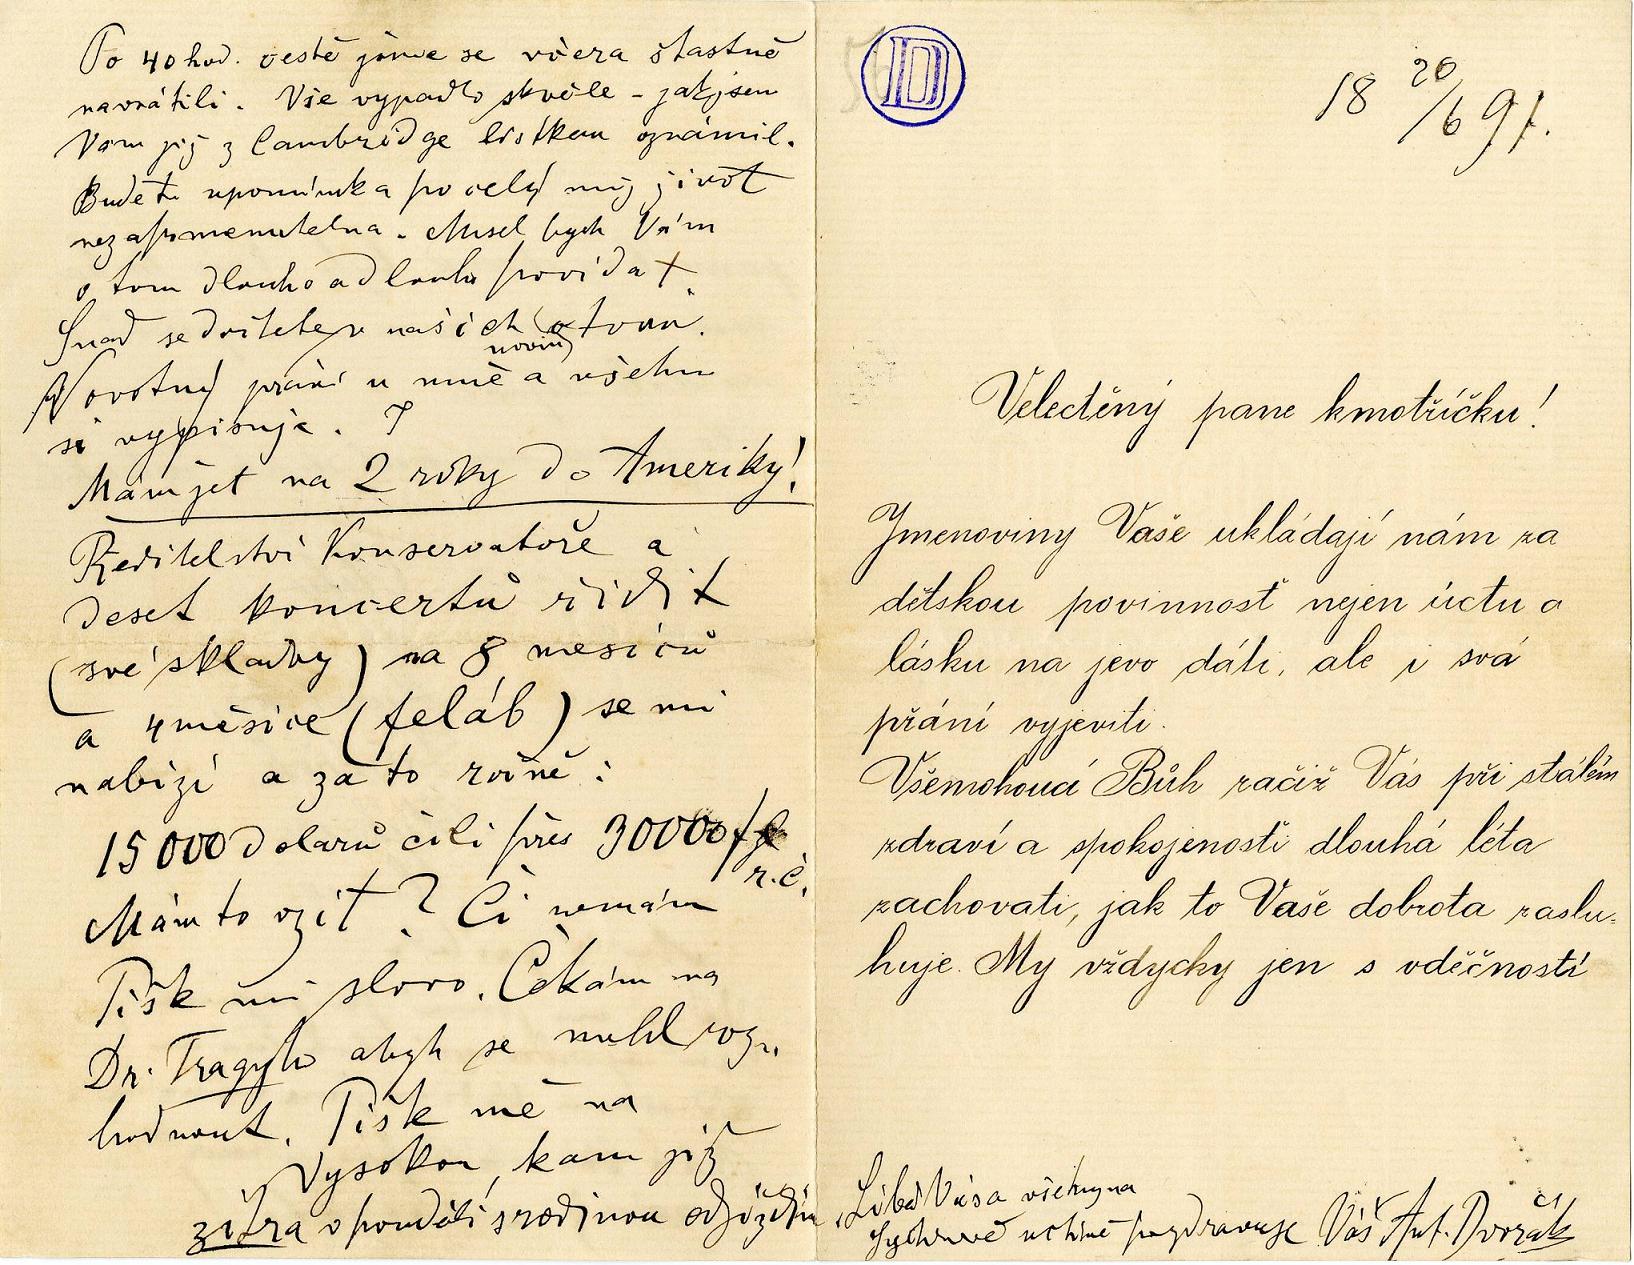 Po 40 hod. cestě jsme se včera šťastně
navrátili. Vše vypadlo skvěle – jak jsem
Vám již z Cambridge lístkem oznámil.
Bude to upomínka po celý můj život
nezapomenutelna. Musel bych Vám
o tom dlouho a dlouho povídat.
Snad se dočtete v našich novin o tom.
Novotný právě u mně a všechno
si vypisuje.
Mám jet na 2 roky do Ameriky!
Ředitelství Konservatoře a
deset koncertů řídit
(své skladby) na 8 mesíců
a 4 měsíce (feláb) se mi
nabízí a za to ročně:
15000 dolarů čili přes 30000 f
r.č.
Mám to vzít? Či nemám
Piště mi slovo. Čekám na
Dr. Tragyho abych se mohl roz-
hodnout. Piště mě na
Vysokou, kam již
zítra v pondělí s rodinou odjíždím.
D
18 20/6 91.
Velectěný pane kmotříčku!
Jmenoviny Vaše ukládají nám za
dětskou povinnosť nejen úctu a
lásku na jevo dáti, ale i svá
přání vyjeviti.
Všemohoucí Bůh račiž Vás při stálém
zdraví a spokojenosti dlouhá léta
zachovati, jak to Vaše dobrota zaslu-
huje. My vždycky jen s vděčností
Líbá Vás a všechny na
Sychrově uctivě pozdravuje Váš Ant. Dvořák